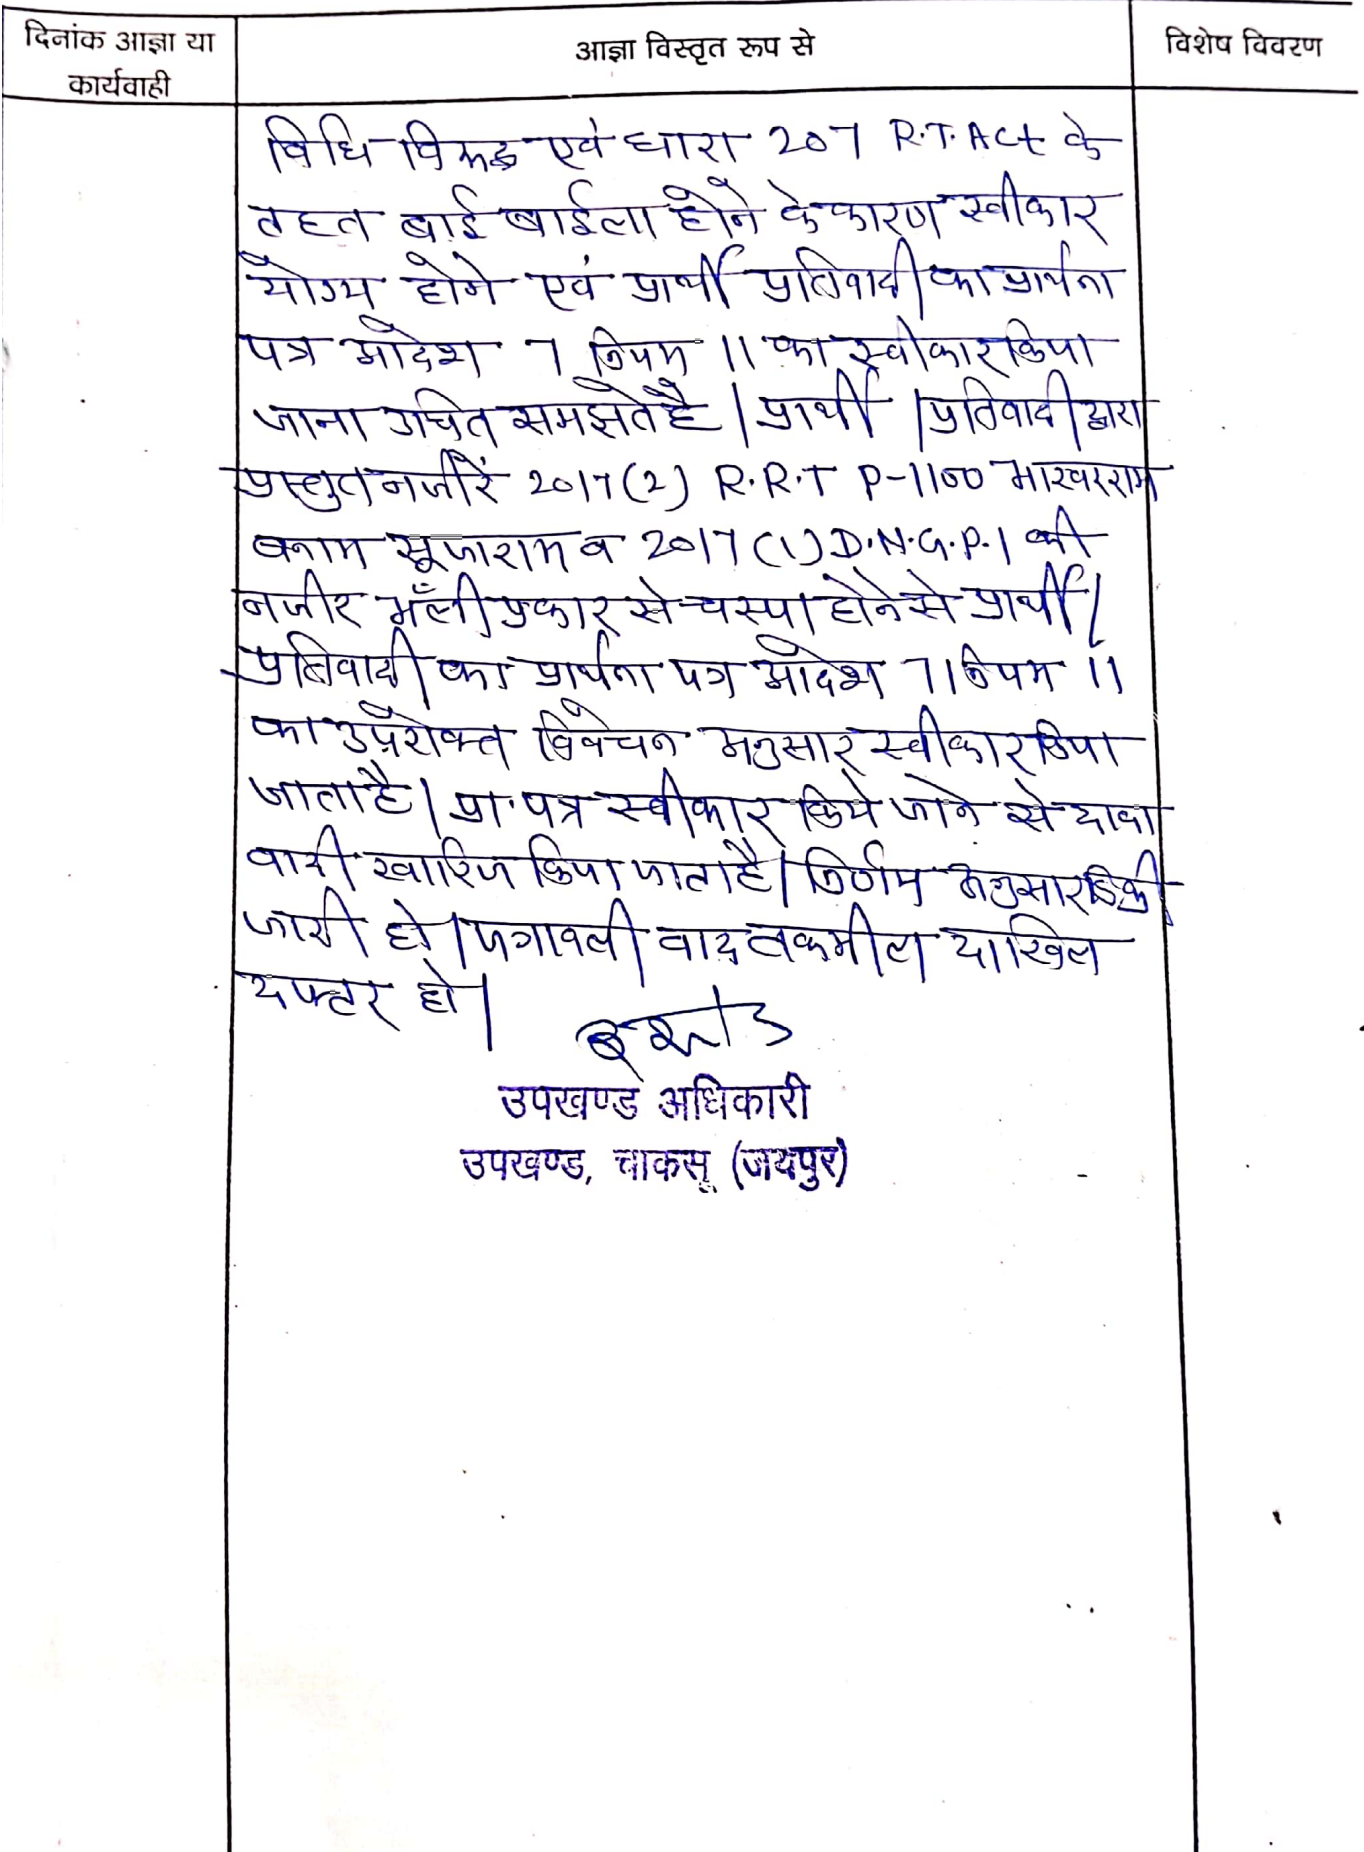 दिनांक आज्ञा या
कार्यवाही
आज्ञा विस्तृत रूप से
विशेष विवरण
विधि विरूद्ध एवं धारा 207 R.T. Act के
तहत बाई बाईला होने के कारण स्वीकार
योग्य होने एवं प्रार्थी प्रतिवादी का प्रार्थना
पत्र आदेश 7 नियम 11 का स्वीकार किया
जाना उचित समझते है | प्रार्थी | प्रतिवादी द्वारा
प्रस्तुत नजीरें 2017 (2) R.R.T P-1100
बनाम सूजाराम व 2017 (1) D.N.G.P.1 की
नजीर भँली प्रकार से चस्पा होने से प्रार्थी /
प्रतिवादी का प्रार्थना पत्र आदेश 7 | नियम 11
का उपरोक्त विवेचन अनुसार स्वीकार किया
जाता है | प्रा. पत्र स्वीकार किये जाने से दावा
वादी खारिज किया जाता है | निर्णय अनुसार डिक्री
जारी हो | पत्रावली बाद तकमील दाखिल
दफ्तर हो |
उपखण्ड अधिकारी
उपखण्ड, चाकसू (जयपुर)